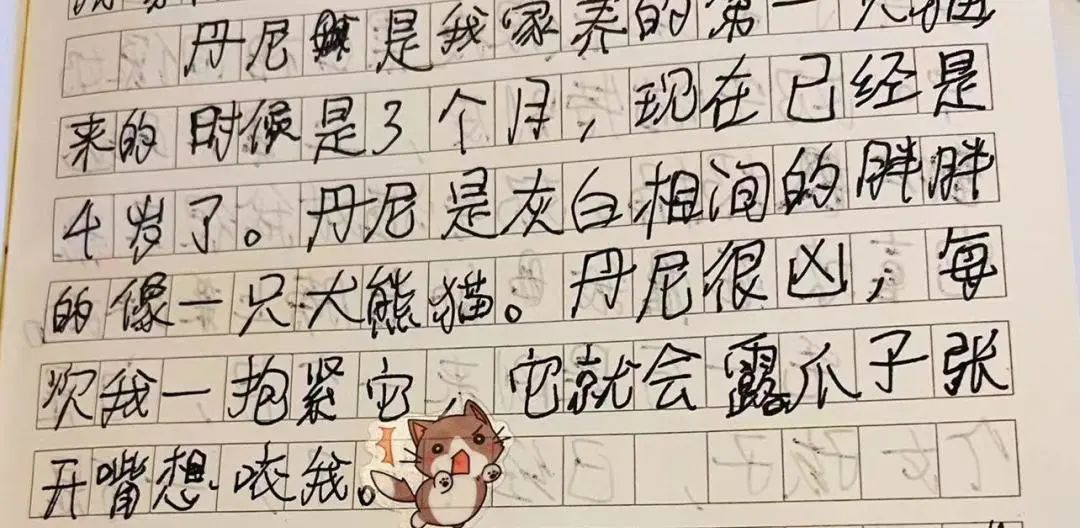 丹尼是我家养的第一只猫
来的时候是3个月，现在已经是
4岁了。丹尼是灰白相间的胖胖
的像一只大熊猫。丹尼很凶，每
次我一抱紧它，它就会露爪子张
开嘴想咬我。